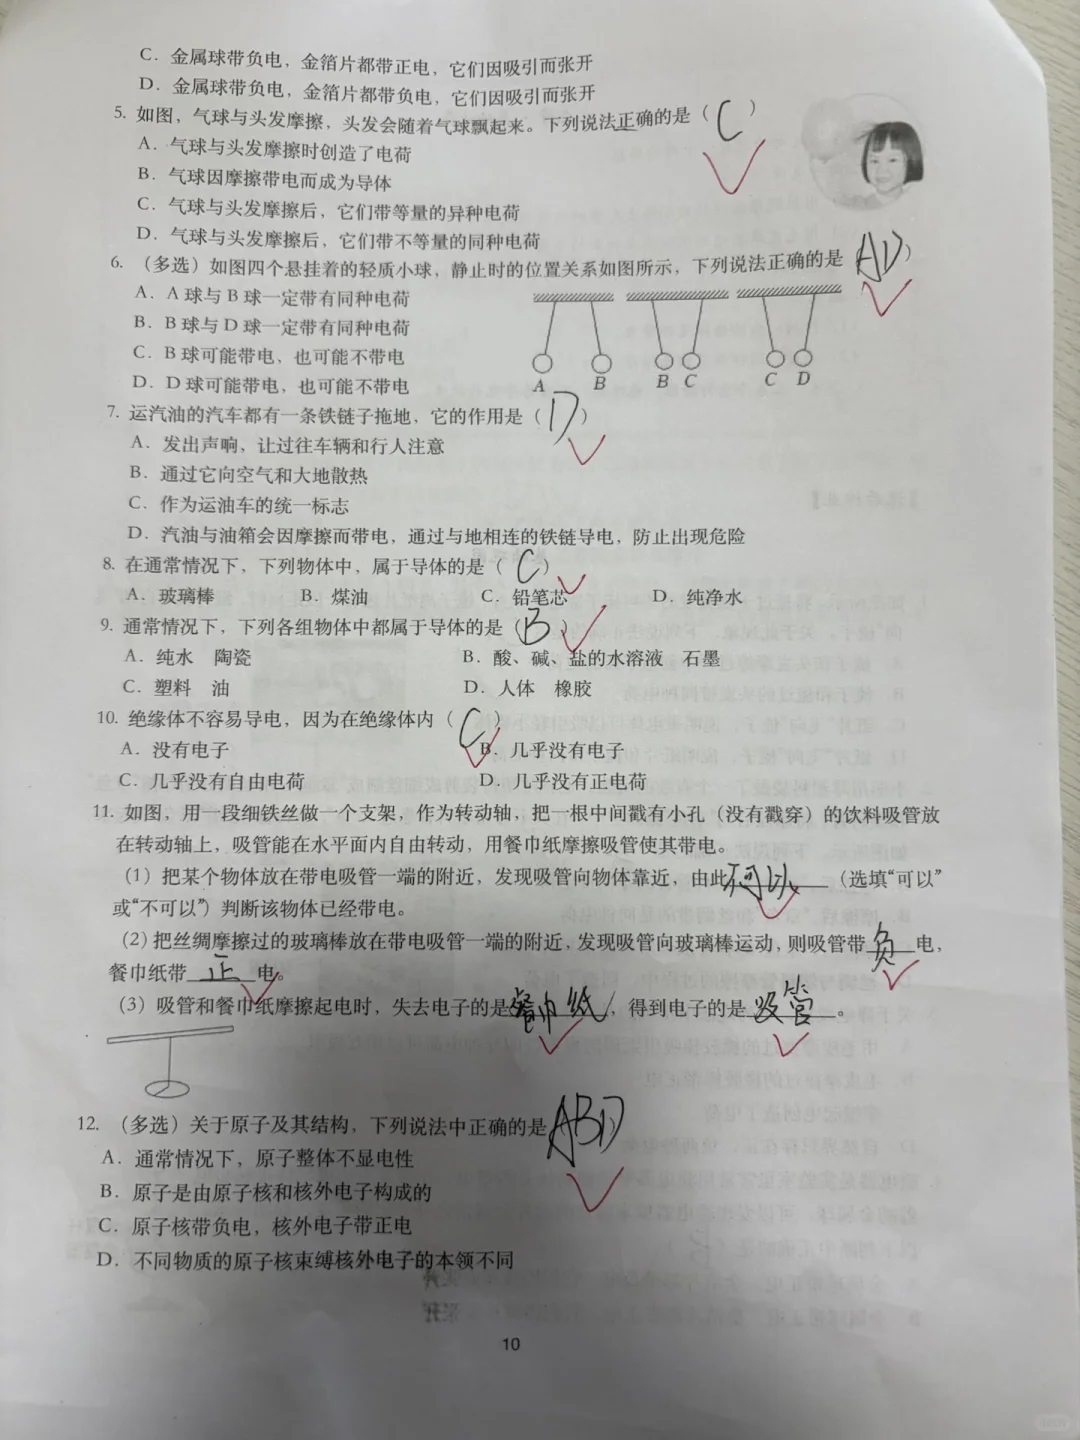 C. 金属球带负电，金箔片都带正电，它们因吸引而张开
D. 金属球带负电，金箔片都带负电，它们因吸引而张开
5. 如图，气球与头发摩擦，头发会随着气球飘起来。下列说法正确的是（ C ）
A. 气球与头发摩擦时创造了电荷
B. 气球因摩擦带电而成为导体
C. 气球与头发摩擦后，它们带等量的异种电荷
D. 气球与头发摩擦后，它们带不等量的同种电荷
6. （多选）如图四个悬挂着的轻质小球，静止时的位置关系如图所示，下列说法正确的是（ AD ）
A. A 球与 B 球一定带有同种电荷
B. B 球与 D 球一定带有同种电荷
C. B 球可能带电，也可能不带电
D. D 球可能带电，也可能不带电
A B B C C D
7. 运汽油的汽车都有一条铁链子拖地，它的作用是（ D ）
A. 发出声响，让过往车辆和行人注意
B. 通过它向空气和大地散热
C. 作为运油车的统一标志
D. 汽油与油箱会因摩擦而带电，通过与地相连的铁链导电，防止出现危险
8. 在通常情况下，下列物体中，属于导体的是（ C ）
A. 玻璃棒 B. 煤油 C. 铅笔芯 D. 纯净水
9. 通常情况下，下列各组物体中都属于导体的是（ B ）
A. 纯水 陶瓷 B. 酸、碱、盐的水溶液 石墨
C. 塑料 油 D. 人体 橡胶
10. 绝缘体不容易导电，因为在绝缘体内（ C ）
A. 没有电子 B. 几乎没有电子
C. 几乎没有自由电荷 D. 几乎没有正电荷
11. 如图，用一段细铁丝做一个支架，作为转动轴，把一根中间戳有小孔（没有戳穿）的饮料吸管放
在转动轴上，吸管能在水平面内自由转动，用餐巾纸摩擦吸管使其带电。
（1）把某个物体放在带电吸管一端的附近，发现吸管向物体靠近，由此不可以（选填“可以”
或“不可以”）判断该物体已经带电。
（2）把丝绸摩擦过的玻璃棒放在带电吸管一端的附近，发现吸管向玻璃棒运动，则吸管带 负 电，
餐巾纸带 正 电。
（3）吸管和餐巾纸摩擦起电时，失去电子的是 餐巾纸 ，得到电子的是 吸管 。
12. （多选）关于原子及其结构，下列说法中正确的是（ ABD ）
A. 通常情况下，原子整体不显电性
B. 原子是由原子核和核外电子构成的
C. 原子核带负电，核外电子带正电
D. 不同物质的原子核束缚核外电子的本领不同
10